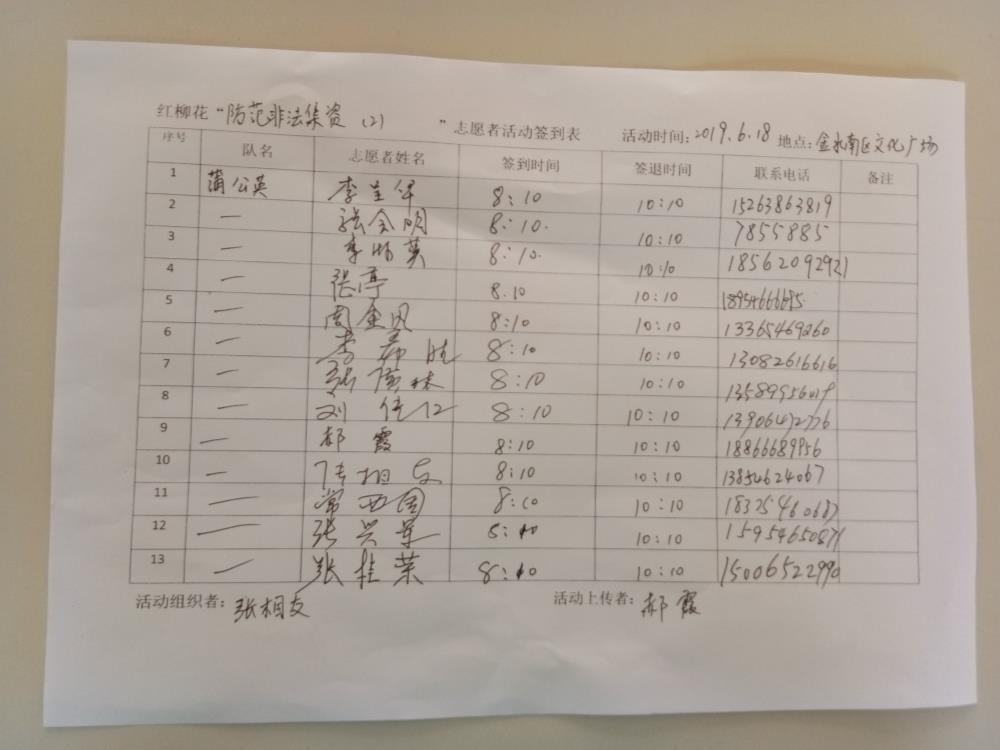 红柳花“防范非法集资（2）”志愿者活动签到表 活动时间：2019.6.18 地点：金水南区文化广场
序号 队名 志愿者姓名 签到时间 签退时间 联系电话 备注
1 蒲公英 李 8:10 10:10 15263863819
2 — 张会明 8:10. 10:10 7855885
3 — 李 英 8:10. 10:10 18562092921
4 — 张亭 8.10 10:10
5 — 周金凤 8:10 10:10 13365469260
6 — 李 胜 8:10 10:10 13082616616
7 — 张 林 8:10 10:10 13589956019
8 — 刘 8:10 10:10 13906472776
9 — 郝霞 8:10 10:10 18866689956
10 — 张相友 8:10 10:10 13854624067
11 — 常西国 8:10 10:10
12 — 张兴军 8:10 10:10 15954650871
13 — 张桂荣 8:10 10:10 15006522990
活动组织者：张相友 活动上传者：郝霞